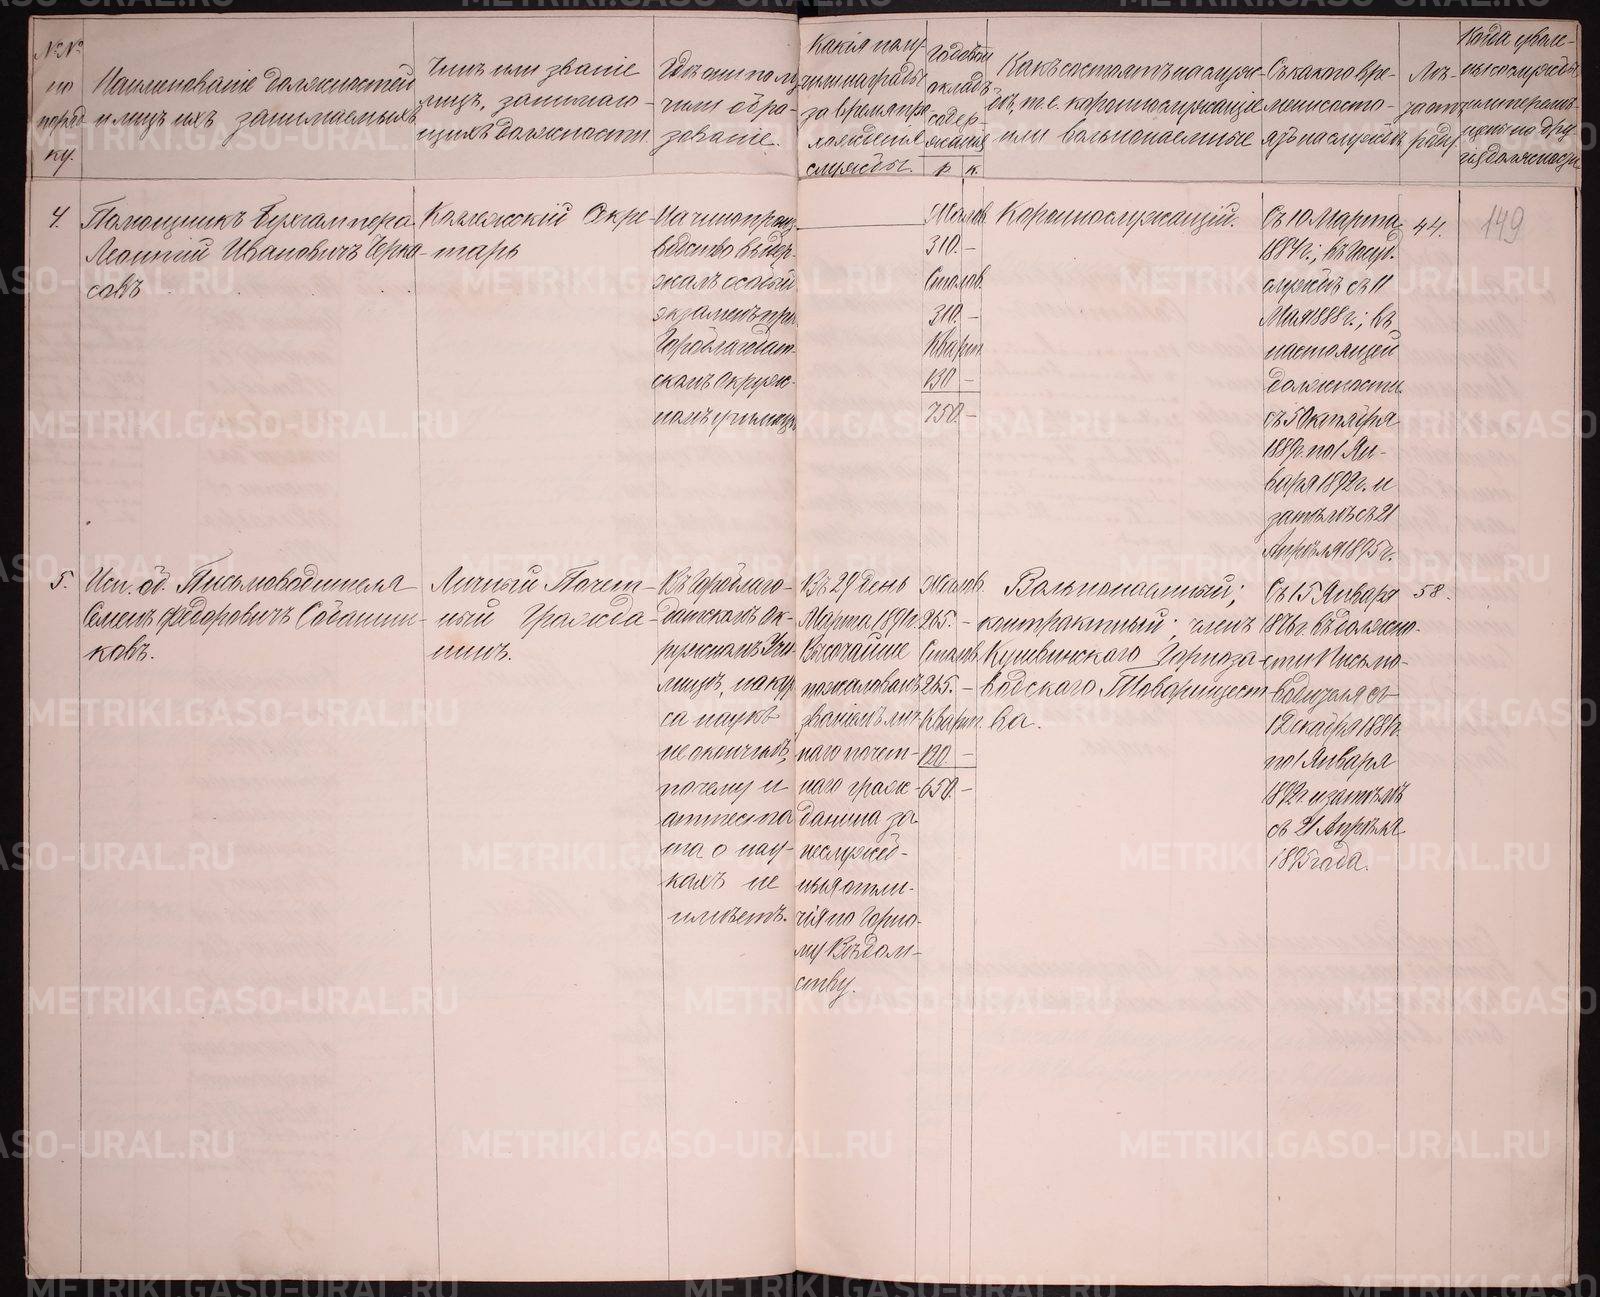 №№ по поряд ку.
Наименованіе должностей и лицъ ихъ занимаемыхъ
Чинъ или званіе лицъ, занимаю- щихъ должности.
Гдѣ они полу чили обра- зованіе.
Какія полу- чили награды за время про хожденія службы.
Годовой окладъ содер- жанія
р. к.
Какъ состоятъ на служ- бѣ, т.е. короннослужащіе или вольнонаемные
Съ какого вре- мени состо- ятъ на службѣ
Лѣ- та отъ роду
Когда уволе- ны со службы или перемѣ- щены на дру гія должности
4.
Помощникъ Бухгалтера
Леонтій Ивановичъ Черка-
совъ
Коллежскій Секре-
тарь
На чинопроиз
водство выдер-
жалъ особый
экзаменъ при
Гороблагодат-
скомъ Окруж-
номъ училищѣ
Жалов.
310.-
Столов.
310.-
Кварт.
130 -
750.-
Короннослужащій.
Съ 10 Марта
1884г.; въ Госуд.
службѣ съ 11
Мая 1888г.; въ
настоящей
должности
съ 5 Октября
1889г. по 1 Ян-
варя 1892г. и
затѣмъ съ 21
Апрѣля 1895г.
44.
149
5.
Исп. об. Письмоводителя
Семенъ Федоровичъ Собянни-
ковъ.
Личный Почет-
ный Гражда-
нинъ.
Въ Гороблаго-
датскомъ Ок-
ружномъ Учи
лищѣ, но кур
са наукъ
не окончилъ,
почему и
аттеста
та о нау-
кахъ не
имѣетъ.
Въ 29 день
Марта 1891г
Высочайше
пожалованъ
званіемъ лич-
наго почет-
наго граж-
данина за
неслужеб-
ныя отли-
чія по Горно-
му Вѣдом-
ству.
Жалов.
265.-
Столов.
265.-
Кварт.
120.-
650.-
Вольнонаемный;
контрактный; членъ
Кушвинскаго Горноза-
водскаго Товарищест-
ва.
Съ 15 Января
1876г. въ должно-
сти Письмо-
водителя съ
1 Декабря 1881г.
по 1 Января
1892г. и затѣмъ
съ 21 Апрѣля
1895 года.
58.